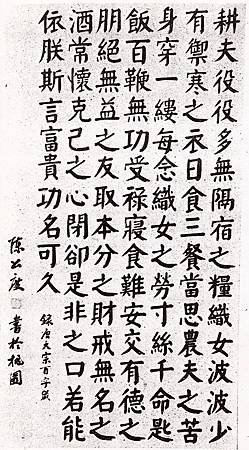 耕夫役役多無隔宿之糧織女波波少
有禦寒之衣日食三餐當思農夫之苦
身穿一縷每念織女之勞寸絲千命匙
飯百鞭無功受祿寢食難安交有德之
朋絕無益之友取本分之財戒無名之
酒常懷克己之心閉卻是非之口若能
依朕斯言富貴功名可久
錄唐太宗百字箴
陳公度 書於桃園